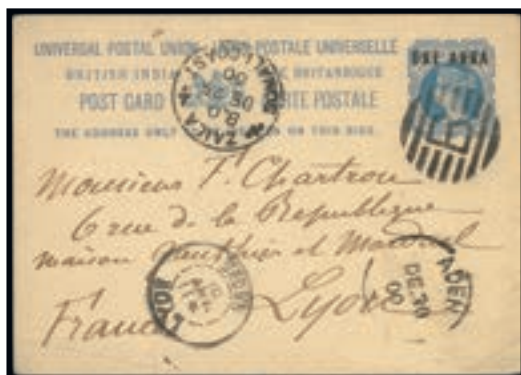 UNIVERSAL POSTAL UNION UNION POSTALE UNIVERSELLE
BRITISH INDIA BRITANNIQUE
POST CARD CARTE POSTALE
THE ADDRESS ONLY ON THIS SIDE.
ONE ANNA
ZAILA
SOMALI COAST
DE
00
B
Monsieur T. Chartron
6 rue de la Republique
maison et
Lyon
France
ADEN
DE.30
00
LYON